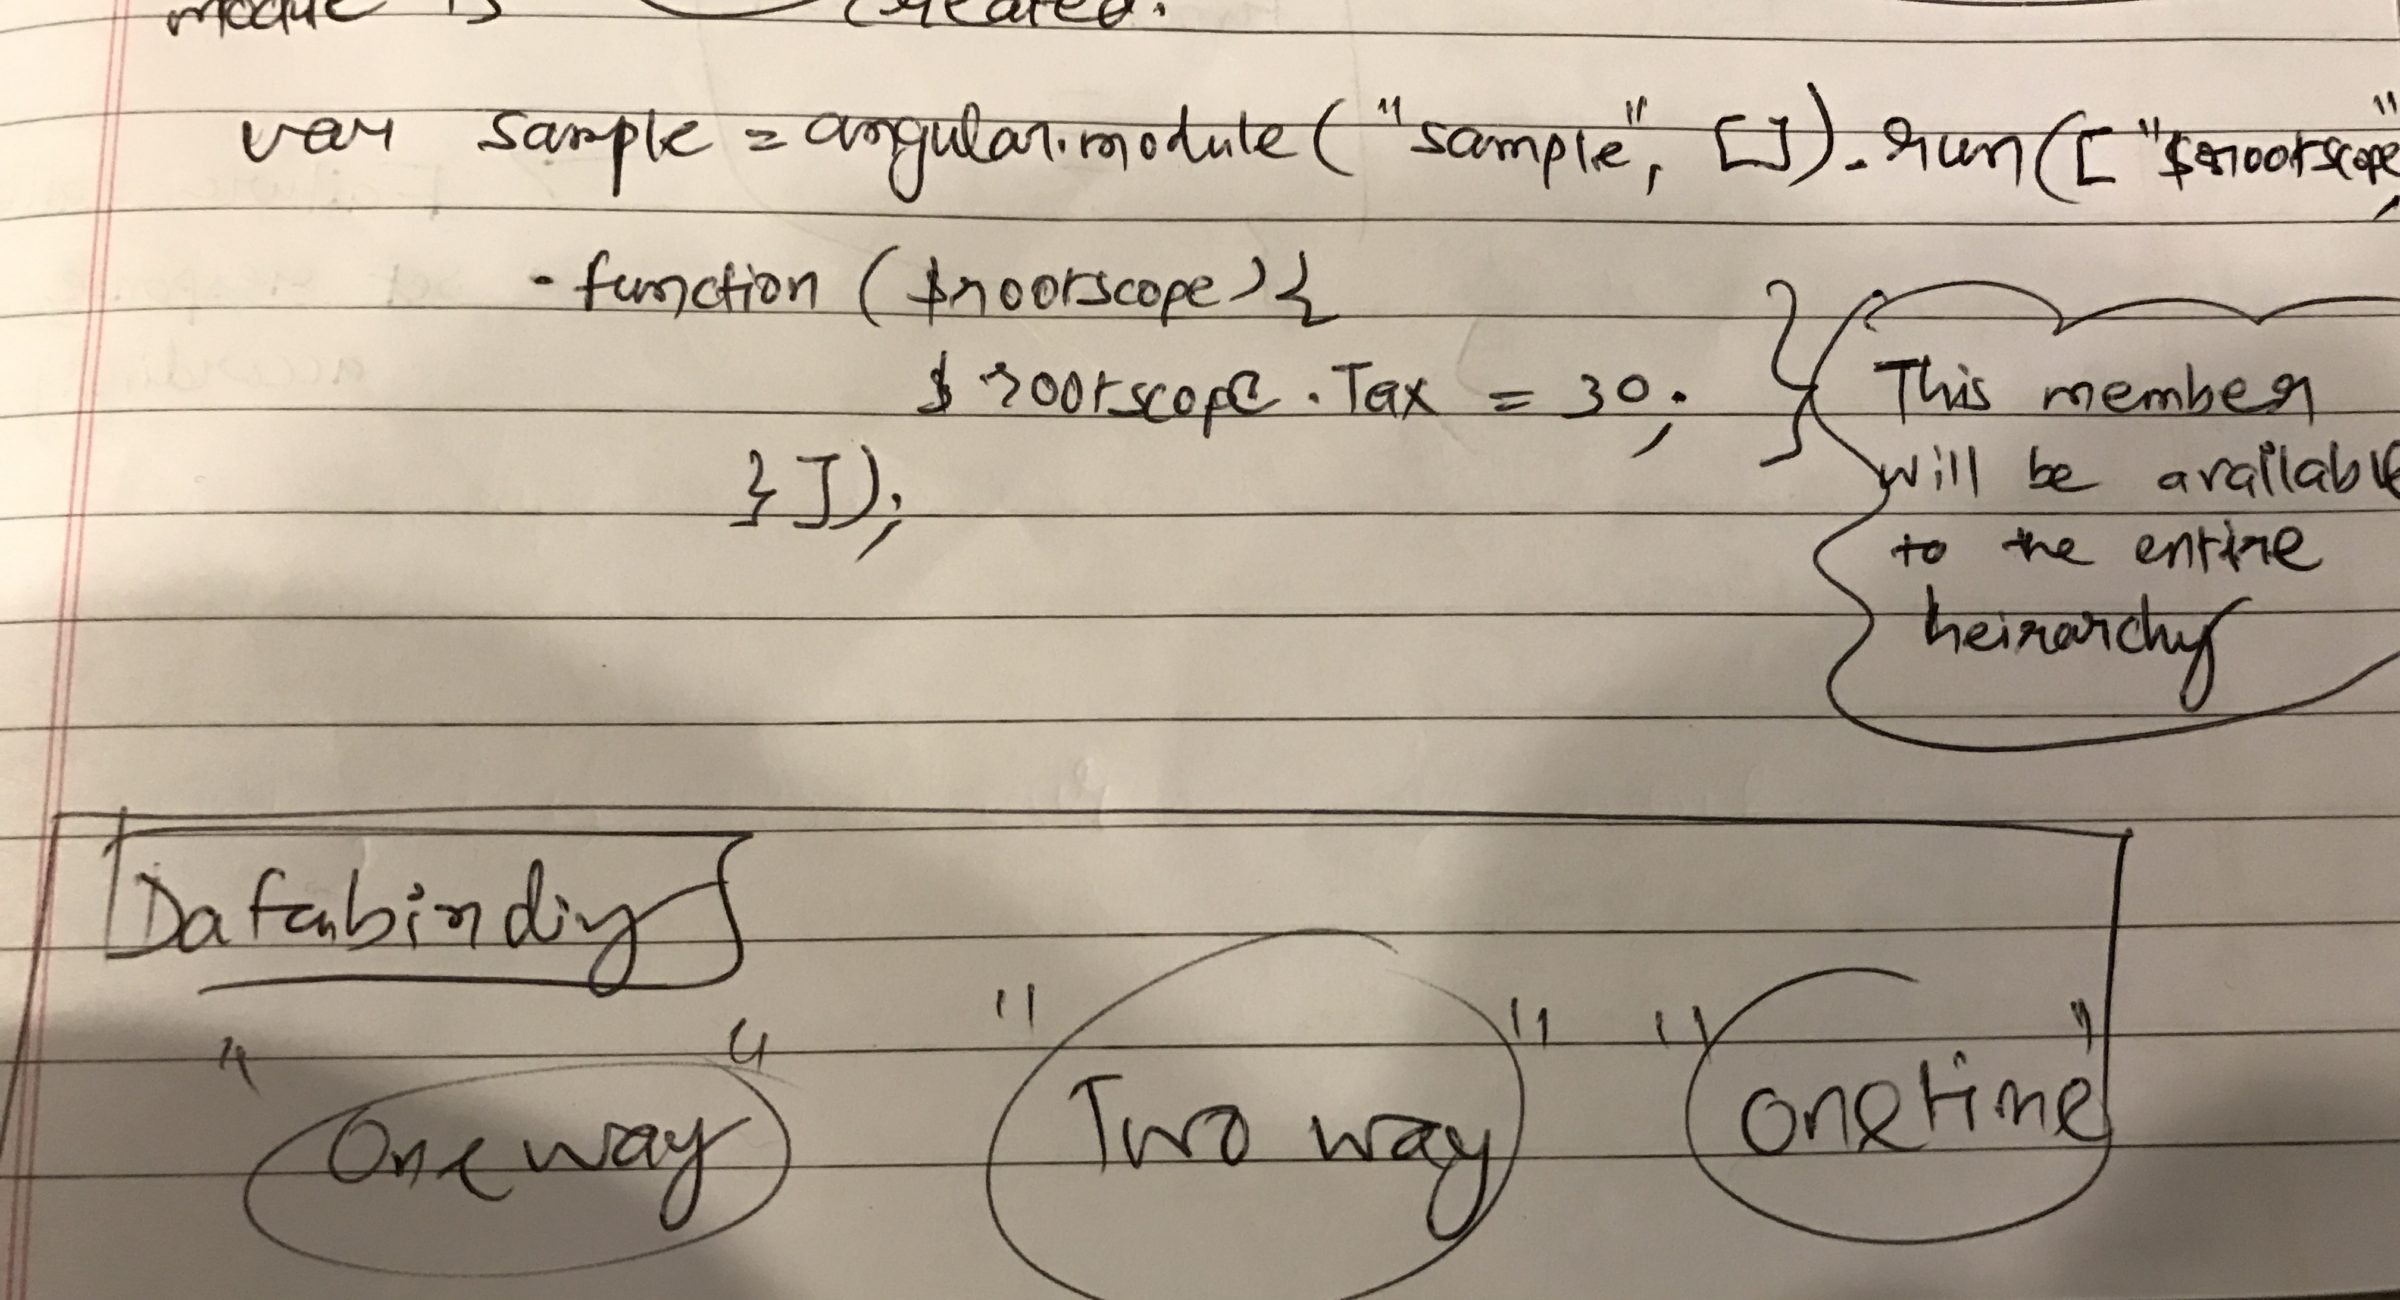 module is created.
var sample = angular.module("sample", []).run(["$rootscope",
- function ($rootscope) {
$rootscope.Tax = 30;
}]);
This member
will be available
to the entire
heirarchy
Databinding
"One way" "Two way" "onetime"